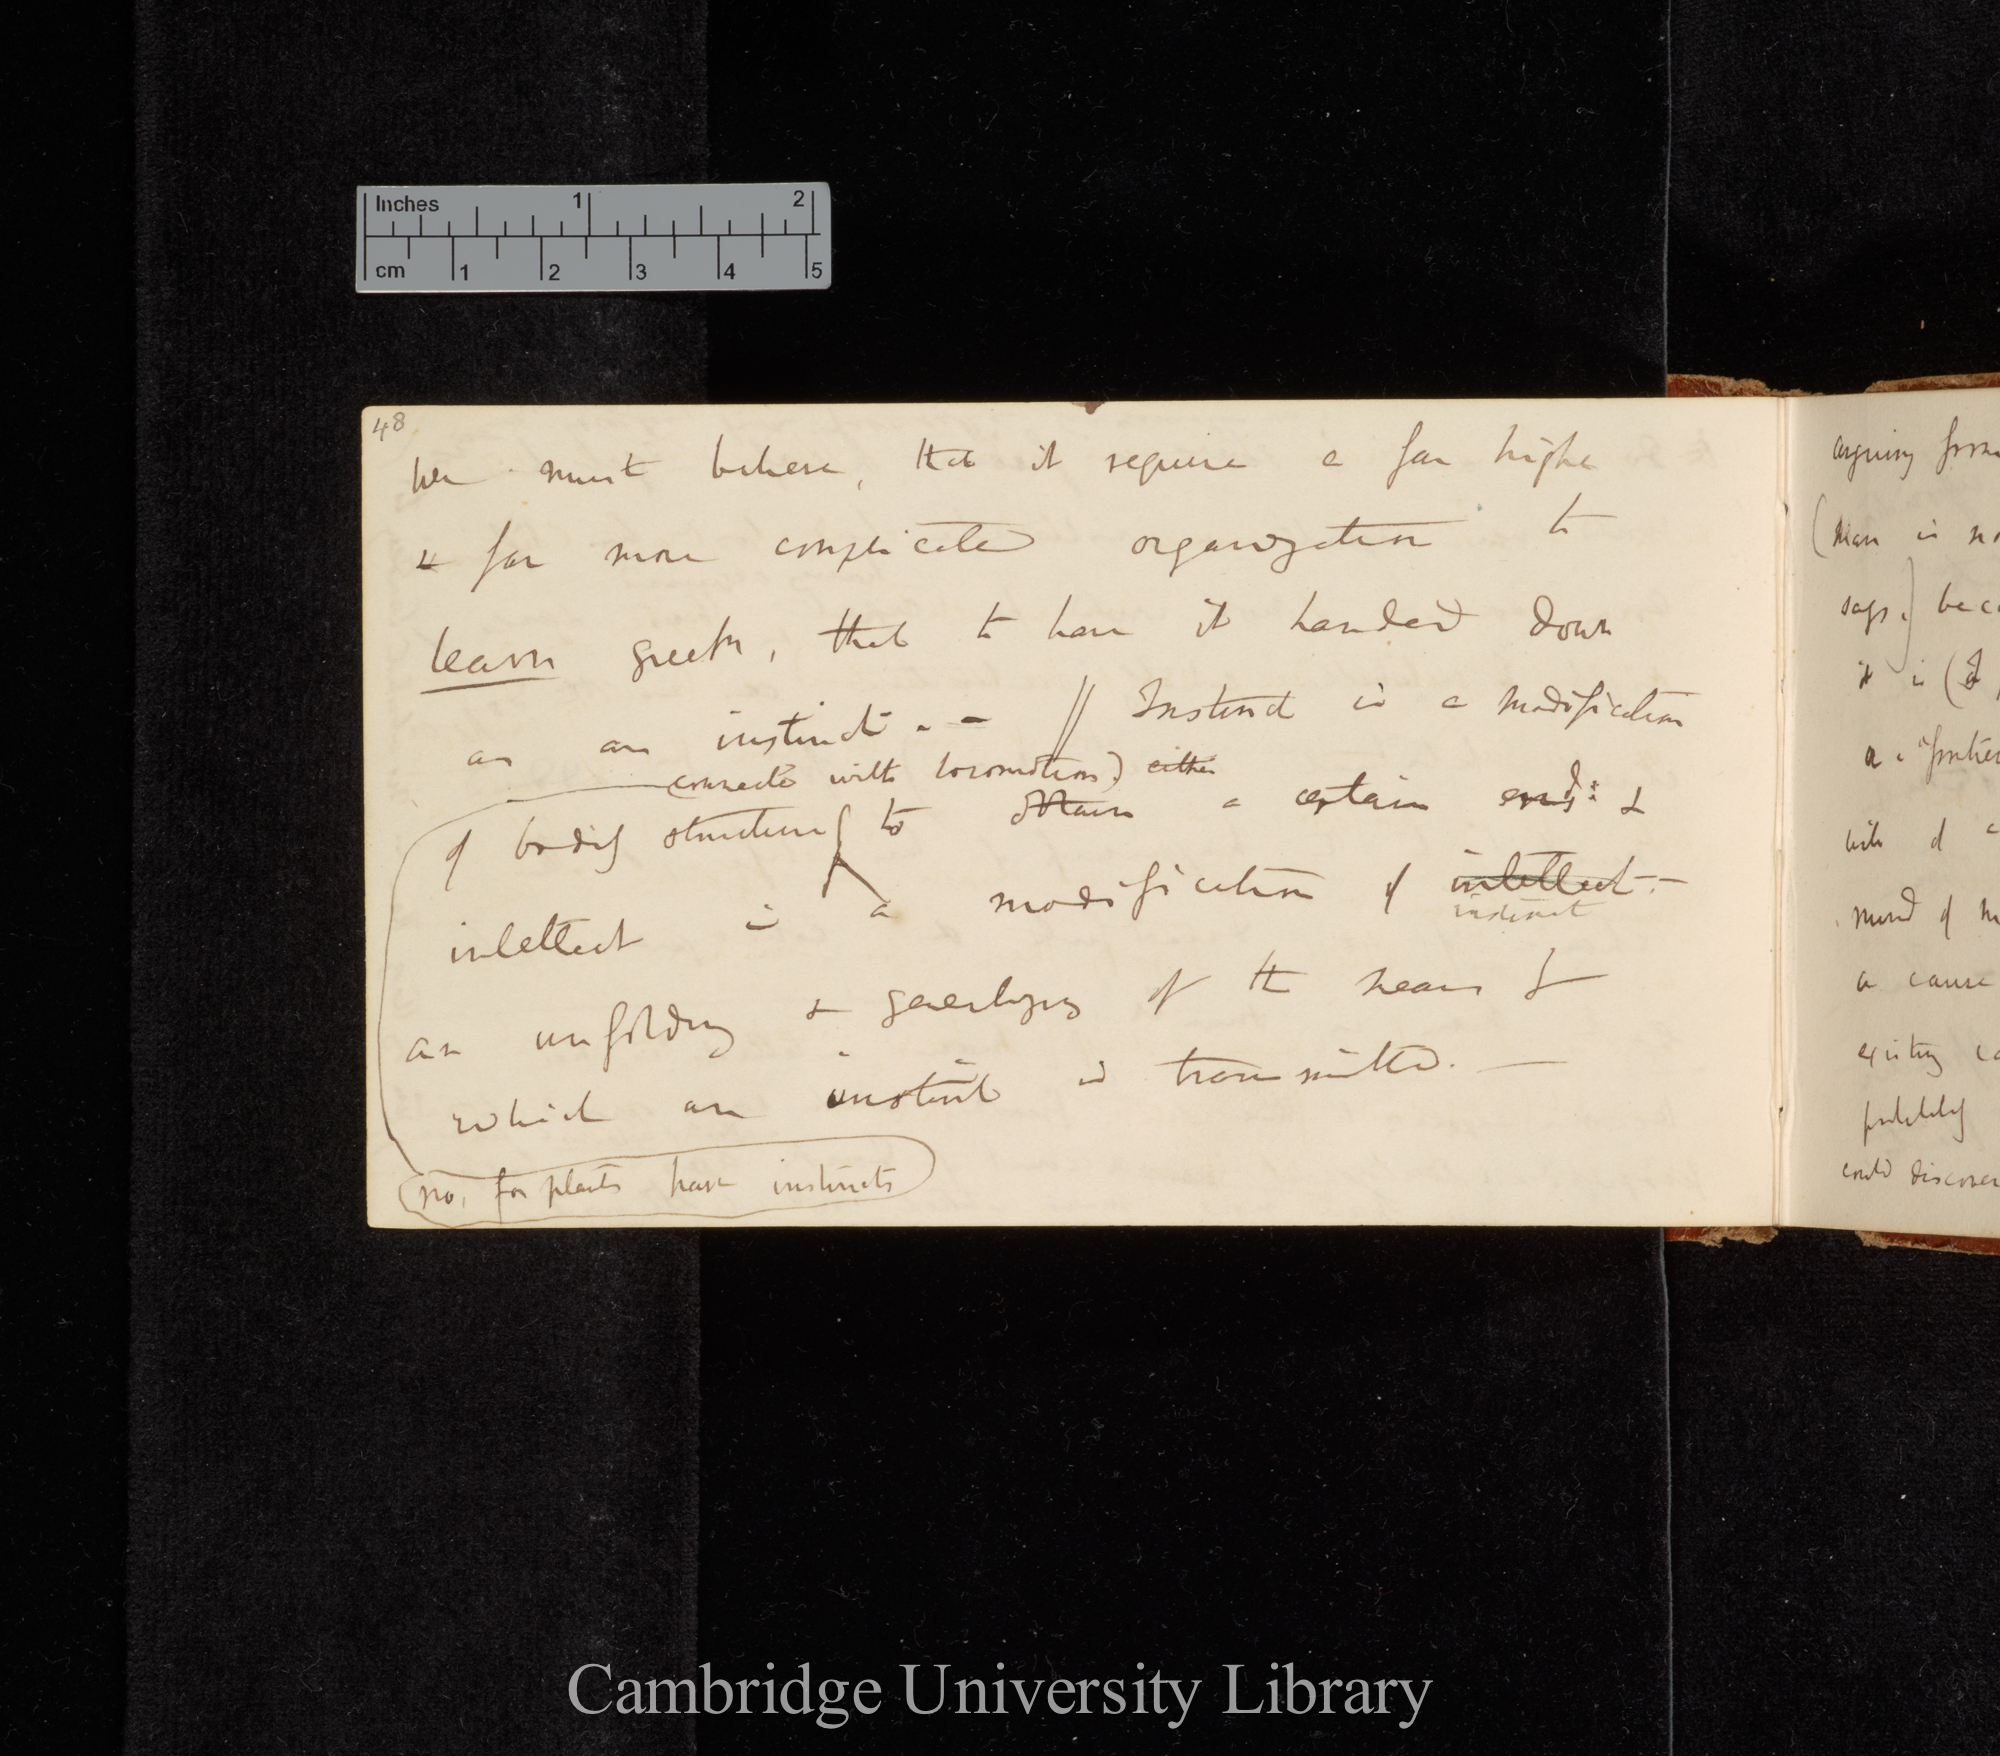 Inches 1 2
cm 1 2 3 4 5
48
we must believe, that it require a far higher
& far more complicated organization to
learn greek, that to have it handed down
as an instinct. — // Instinct is a modification
connected with locomotion.) either
of bodily structure to obtain a certain end: &
intellect is a modification of intellect. —
instinct
an unfolding & of the means by
which an instinct is transmitted. —
no, for plants have instincts
arguing from
(Man is no
says.) beca
it is (I
a cause
existing
probably
could discover
Cambridge University Library